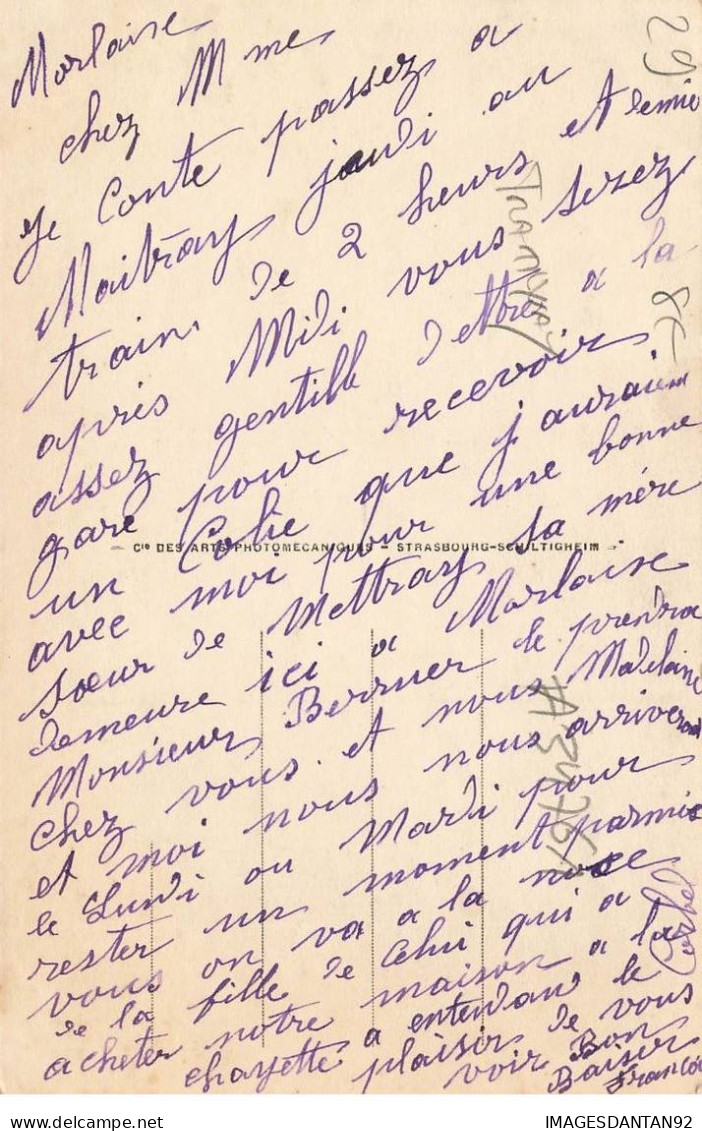 Morlaise
chez Mme
Je Conte passez a
Maitray jeudi au
train de 2 heurs et demie
après Midi vous serez
assez gentille d'etre a la
gare pour recevoir
un Colie que j'aurai
avec moi pour une bonne
soeur de Mettray sa mére
demeure ici a Morlaise
Monsieur Berruer le prendra
chez vous et nous Madelaine
et moi nous nous arriveron
le Lundi ou Mardi pour
rester un moment parmie
vous on va a la noce
de la fille de celui qui a
acheter notre maison a la
chayette a entendant le
plaisir de vous
voir Bon
Baiser
Francoi
Corbel
29
TRAMWAY
8€
A34761
Cie DES ARTS PHOTOMECANIQUES - STRASBOURG-SCHILTIGHEIM
IMAGESDANTAN92